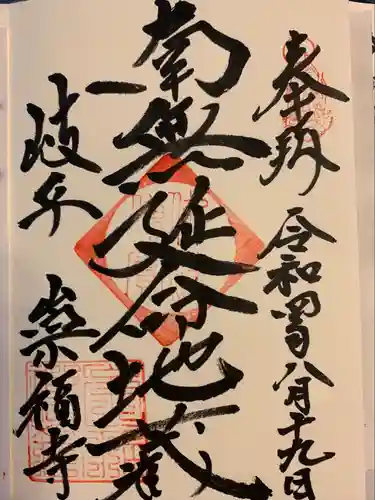 奉拝
令和四年八月十九日
南無延命地蔵
岐阜
崇福寺